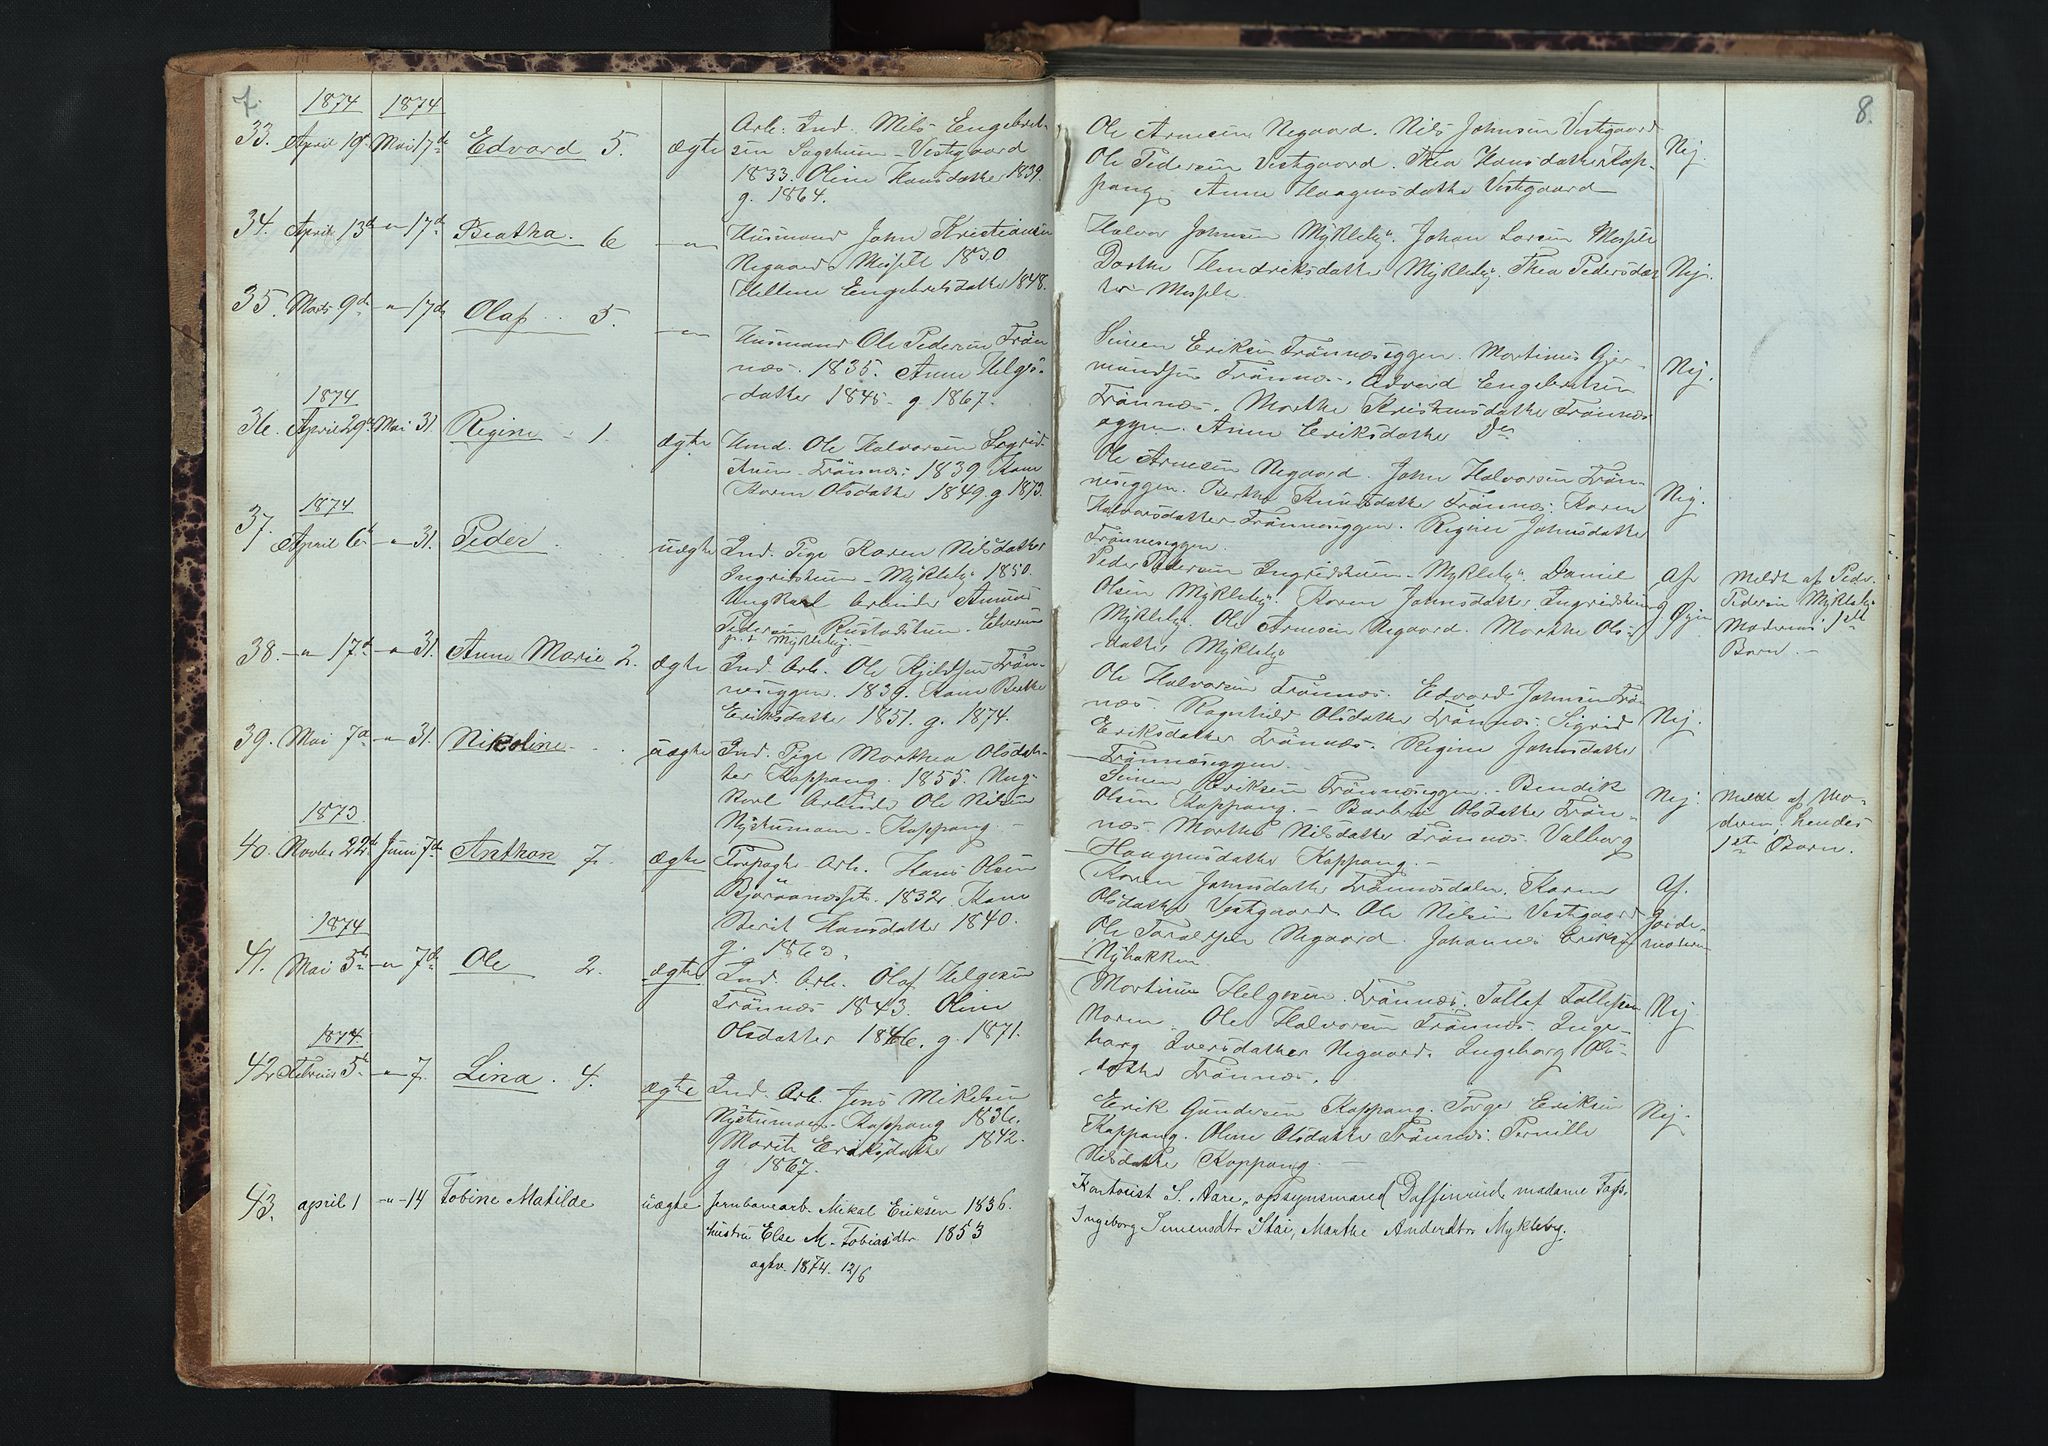 7.
1874 1874
33. April 19de Mai 17de Edvard 5. ægte Arb. Ind. Nils Engebret-
sen Sagstuen-Vestgaard
1833. Oline Hansdatter 1839.
g. 1864.
34. April 13de -"- 17de Beatha. 6 -"- Husmand John Kristiansen
Negaard Messelt 1830
Helene Engebretsdatter 1848.
35. Marts 9de -"- 17de Olaf 5. -"- Husmand Ole Pedersen Trön-
næs. 1835. Anne Helgs-
datter 1845 g. 1867.
1874
36. April 29de Mai 31. Regine - 1. ægte Hmd. Ole Halvorsen
Trönnæs 1839 Kone
Karen Olsdatter 1849 g. 1873.
1874
37. April 6te -"- 31. Peder uægte Ind. Pige Karen Nilsdatter
Ingridstuen-Mykleby 1850.
Ungkarl Arbeider Amund
Pedersen Rustadstuen. Elverum
p.t. Mykleby.-
38. -"- 17de -"- 31. Anne Marie 2. ægte Ind. Arb. Ole Kjeldsen Trön-
neseggen. 1839. Kone Berthe
Eriksdatter 1851. g. 1874.
39. Mai 7de -"- 31. Nikoline uægte Ind. Pige Marthea Olsdat-
ter Koppang. 1855. Ung-
karl Arbeider Ole Nilsen
Nystumoen-Koppang.
1873
40. Novbr 22de Juni 7de Anthon 7. ægte Forpagter Arb. Hans Olsen
Björaanæsset. 1832. Kone
Berit Hansdatter 1840.
g. 1863.
1874
41. Mai 5te -"- 7de Ole 2. ægte Ind. Arb. Olaf Helgesen
Trönnæs 1843. Oline
Olsdatter 1846. g. 1871.
1874
42. Februar 5te -"- 7. Lina. 4. ægte Ind. Arb. Jens Mikelsen
Nystumoen-Koppang 1836.
Marit Eriksdatter 1842.
g 1867.
43. april 1 -"- 14 Tobine Matilde uægte Jernbanearb. Mikal Eriksen 1836.
hustru Else M. Tobiasdtr. 1853
ægtv. 1874. 12/6
8.
Ole Arnesen Negaard. Nils Johnsen Vestgaard
Ole Pedersen Vestgaard. Thea Hansdatter Kop-
pang. Anne Haagensdatter Vestgaard
Nej.
Halvor Johnsen Mykleby. Johan Larsen Messelt
Dorthe Hendriksdatter Mykleby. Thea Pedersdat-
ter Messelt.
Nej.
Simen Eriksen Trönnæseggen. Martinus Gjer-
mundsen Trönnæs. Edvard Engebretsen
Trönnæs. Marthe Kristensdatter Trönnæs-
eggen. Anne Eriksdatter Do
Nej.
Ole Arnesen Negaard. John Halvorsen Trön-
neseggen. Berthe Knudsdatter Trönnæs. Karen
Halvorsdatter Trönneseggen. Regine Johnsdatter
Trönneseggen.
Nej.
Peder Pedersen Ingridstuen-Mykleby. Daniel
Olsen Mykleby. Karen Johnsdatter Ingridstuen
Mykleby. Ole Arnesen Negaard. Marthe Ols-
datter Mykleby
Af
Meldt af Peder
Pedersen Mykleby
Moderens 1ste
Barn.-
Ole Halvorsen Trönnæs. Edvard Johnsen Trön-
næs. Ragnhild Olsdatter Trönnæs. Sigrid
Eriksdatter Trönnæs. Regine Johnsdatter
Trönnæseggen.
Nej.
Simen Eriksen Trönnæseggen. Bendik
Olsen Koppang.- Barbro Olsdatter Trön-
næs. Marthe Nilsdatter Trönnæs. Valborg
Haagensdatter Koppang.-
Nej.
Meldt af Mo-
deren, hendes
1ste Barn.
Karen Johnsdatter Trönnæsdalen. Karen
Olsdatter Vestgaard. Ole Nilsen Vestgaard
Ole Negaard. Johannes Eriksen
Nybakken.
Af
Jorde-
moderen
Martinus Helgesen Trönnæs. Tollef Tollefsen
Moren. Ole Halvorsen Trönnæs. Inge-
borg Iversdatter Negaard. Ingeborg Ols-
datter Trönnæs.
Nej
Erik Gundersen Koppang. Torger Eriksen
Koppang. Oline Olsdatter Trönnæs. Pernille
Nilsdatter Koppang.
Nej.
Kontorist S. Aare, opsynsmand Daffinrud, madame
Ingeborg Simensdtr Stai, Marthe Andersdtr Mykleby.